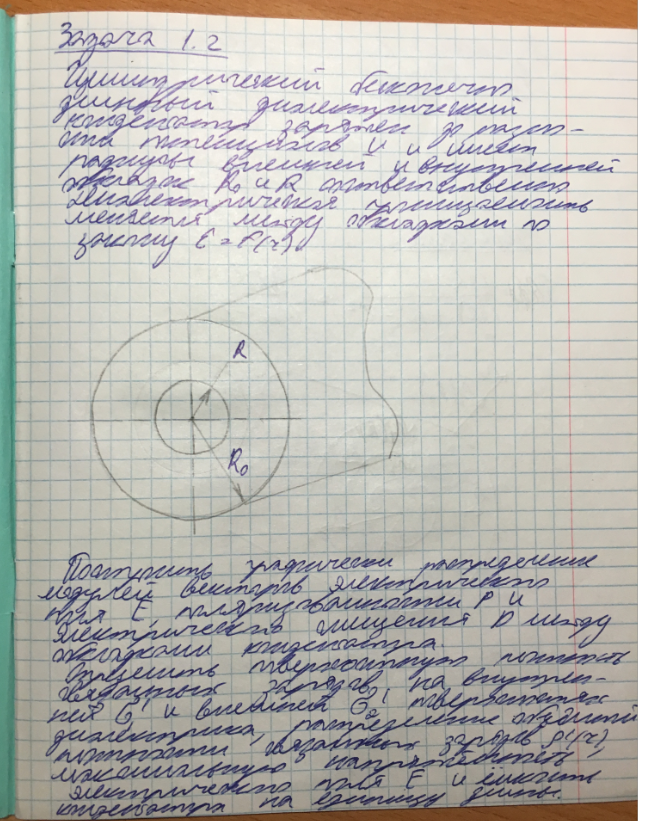 Задача 1.2
Цилиндрический бесконечно
длинный диэлектрический
конденсатор заряжен до разно-
сти потенциалов U и имеет
радиусы внешней и внутренней
обкладок R₀ и R соответственно
Диэлектрическая проницаемость
меняется между обкладками по
закону ε = f(r)
R
R₀
Построить графически распределение
модулей векторов электрического
поля E, поляризованности P и
электрического смещения D между
обкладками конденсатора.
Определить поверхностную плотность
связанных зарядов на внутрен-
ней σ₁' и внешней σ₂' поверхностях
диэлектрика, распределение объёмной
плотности связанных зарядов ρ'(r),
максимальную напряжённость
электрического поля E и ёмкость
конденсатора на единицу длины.